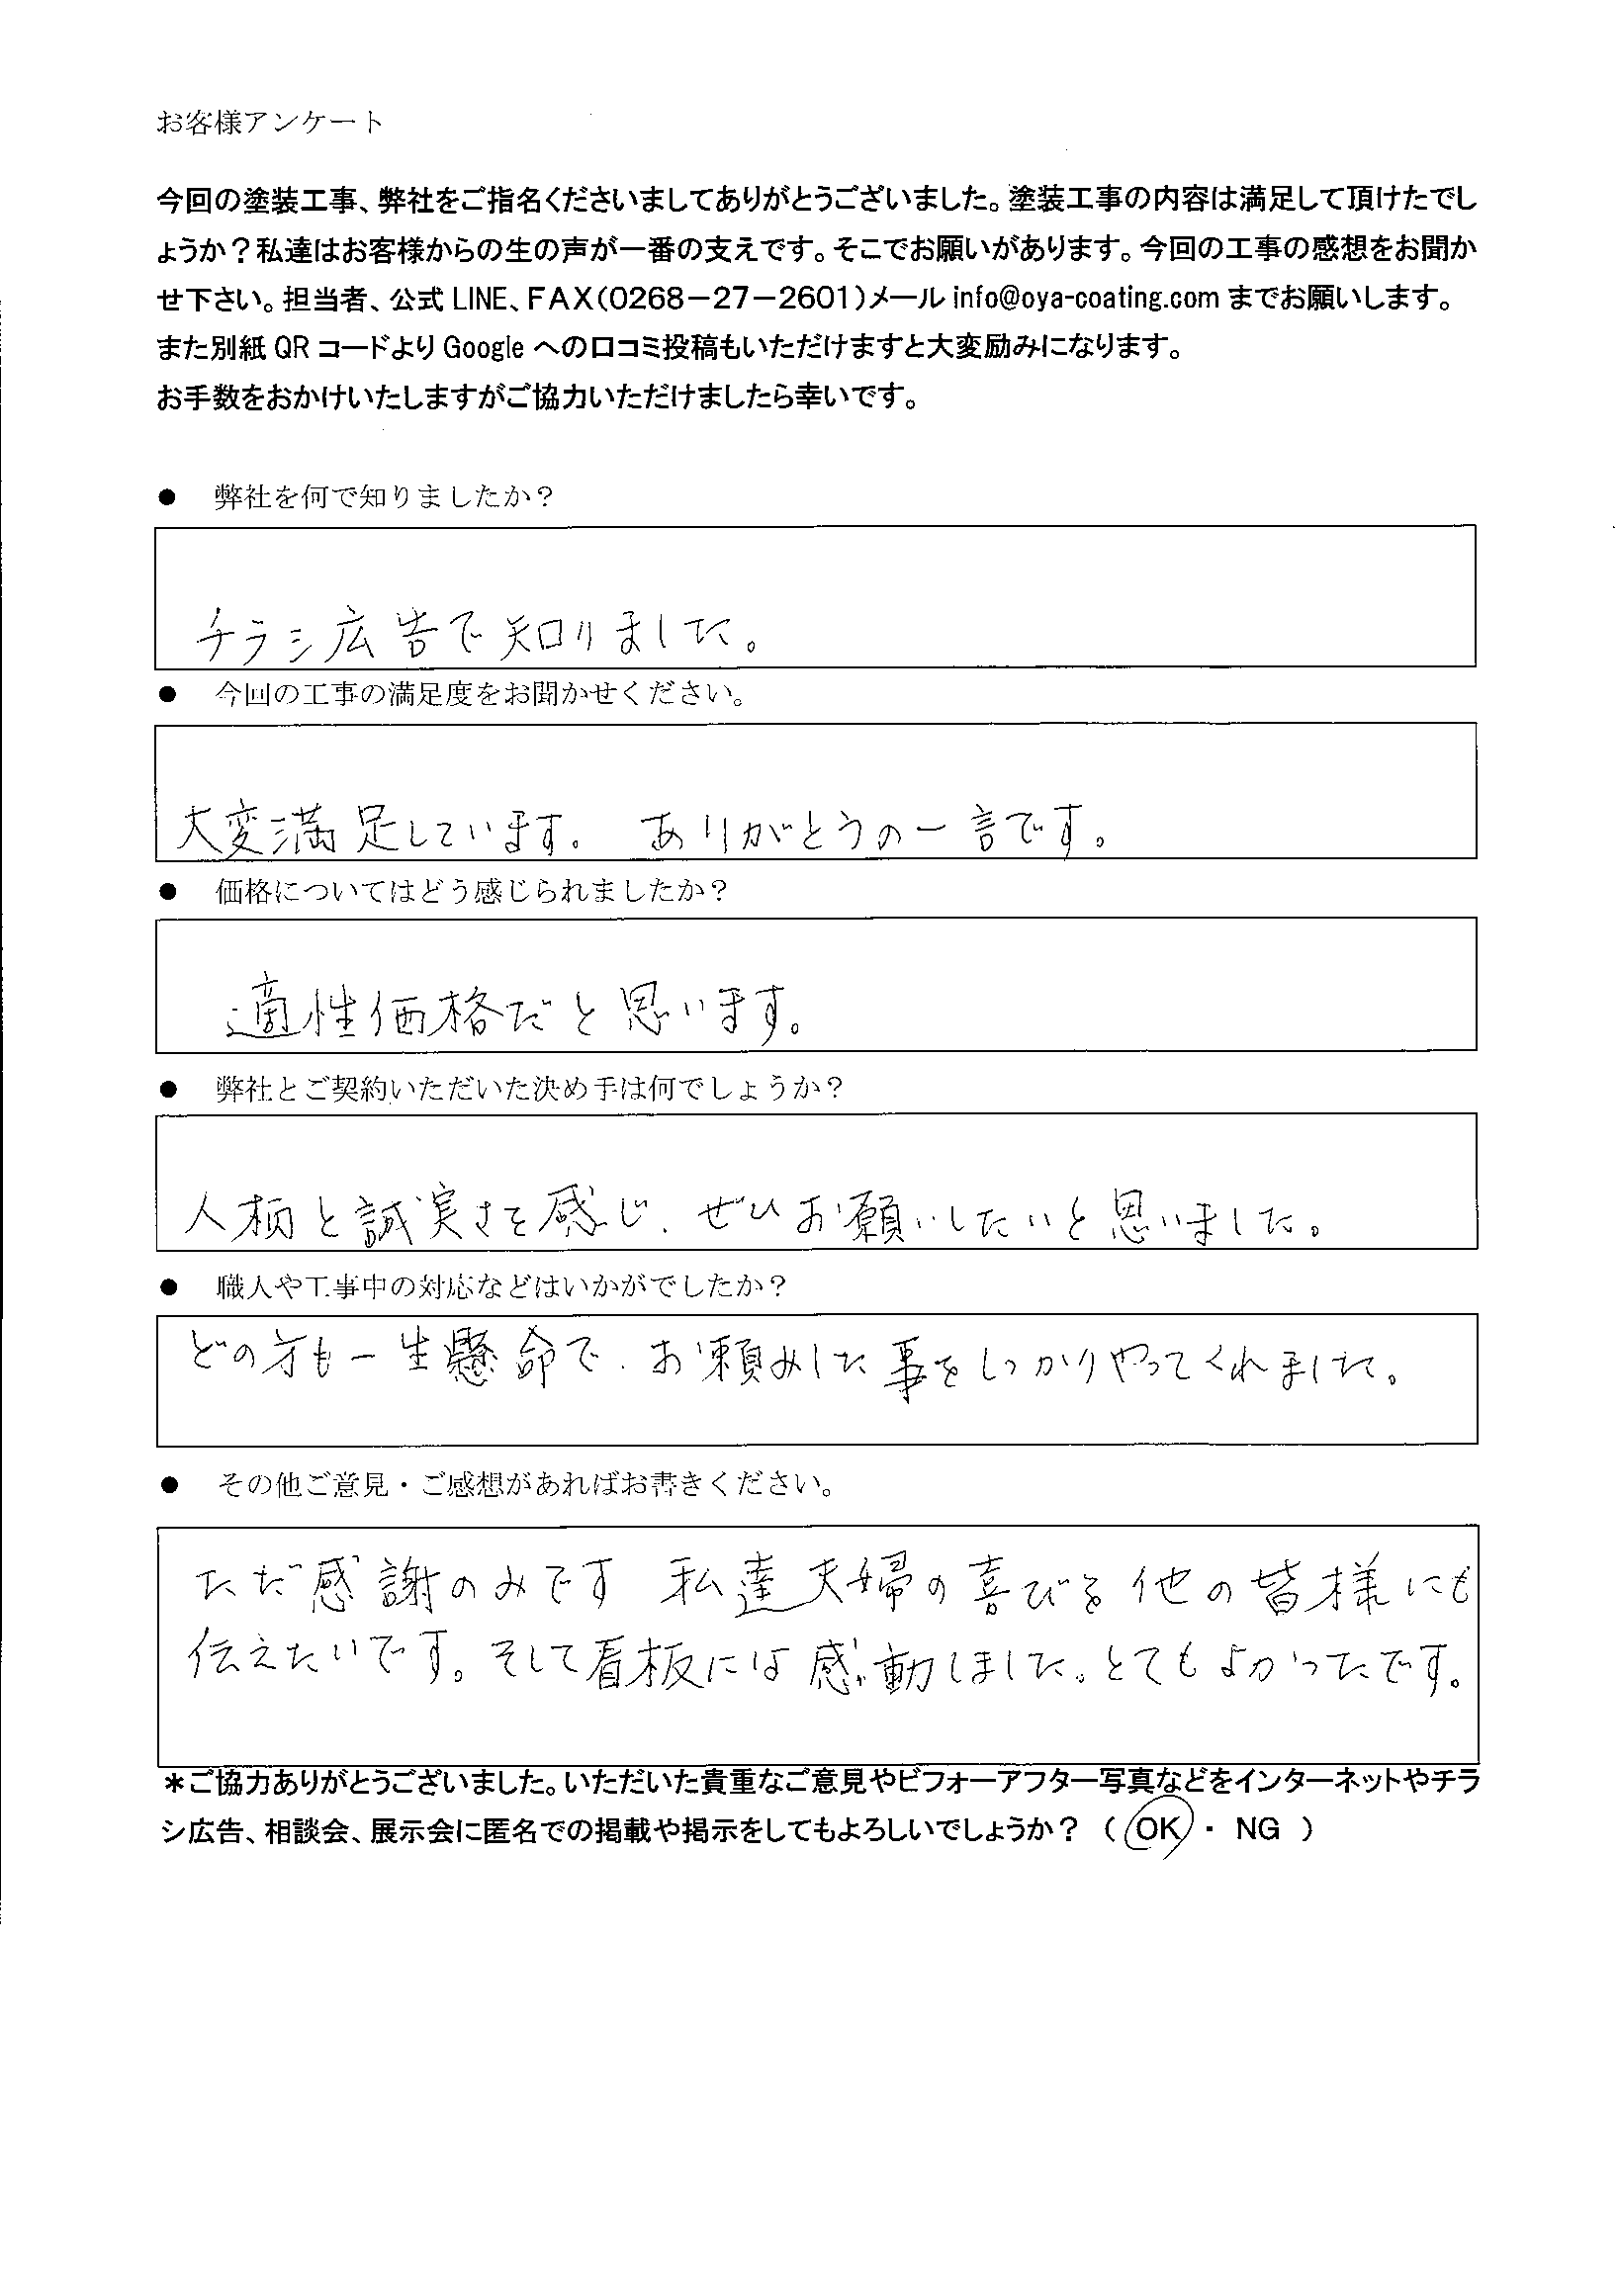 お客様アンケート
今回の塗装工事、弊社をご指名くださいましてありがとうございました。塗装工事の内容は満足して頂けたでし
ょうか？私達はお客様からの生の声が一番の支えです。そこでお願いがあります。今回の工事の感想をお聞か
せ下さい。担当者、公式 LINE、FAX（0268－27－2601）メール info@oya-coating.com までお願いします。
また別紙 QR コードより Google への口コミ投稿もいただけますと大変励みになります。
お手数をおかけいたしますがご協力いただけましたら幸いです。
● 弊社を何で知りましたか？
チラシ広告で知りました。
● 今回の工事の満足度をお聞かせください。
大変満足しています。 ありがとうの一言です。
● 価格についてはどう感じられましたか？
適性価格だと思います。
● 弊社とご契約いただいた決め手は何でしょうか？
人柄と誠実さを感じ、ぜひお願いしたいと思いました。
● 職人や工事中の対応などはいかがでしたか？
どの方も一生懸命で、お頼みした事をしっかりやってくれました。
● その他ご意見・ご感想があればお書きください。
ただ感謝のみです 私達夫婦の喜びを他の皆様にも
伝えたいです。そして看板には感動しました。とてもよかったです。
＊ご協力ありがとうございました。いただいた貴重なご意見やビフォーアフター写真などをインターネットやチラ
シ広告、相談会、展示会に匿名での掲載や掲示をしてもよろしいでしょうか？（ OK ・ NG ）